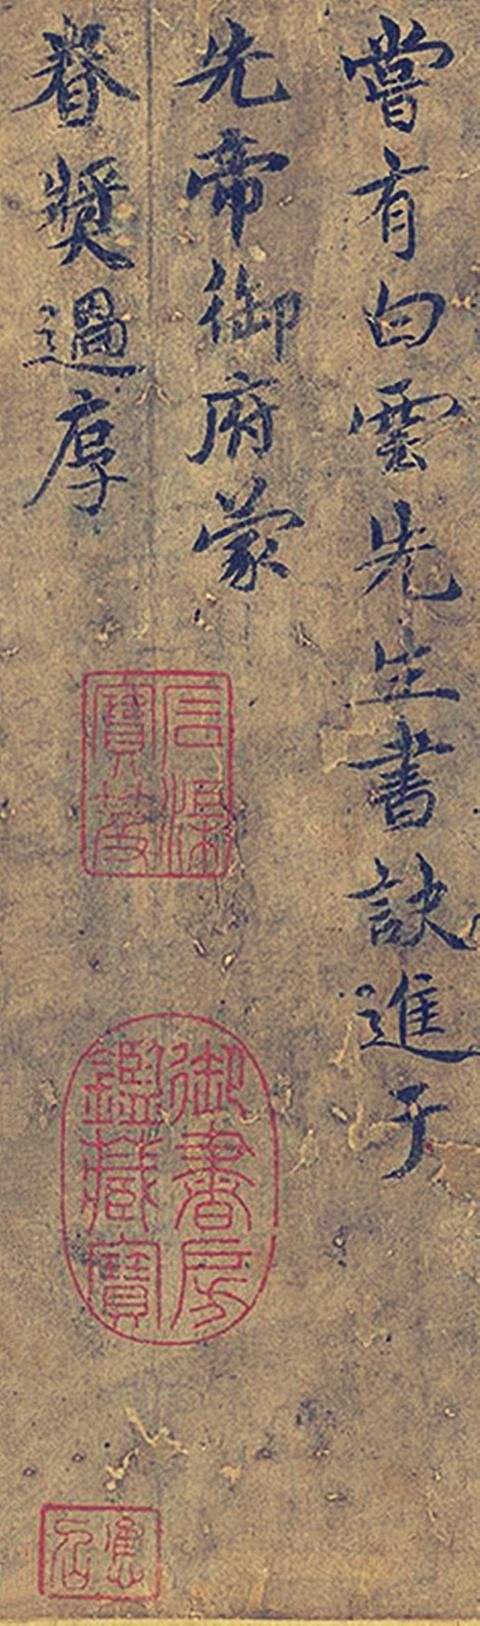 嘗有白雲先生書訣進于
先帝御府蒙
眷奬過厚
石渠
寶芨
御書房
鑑藏寶